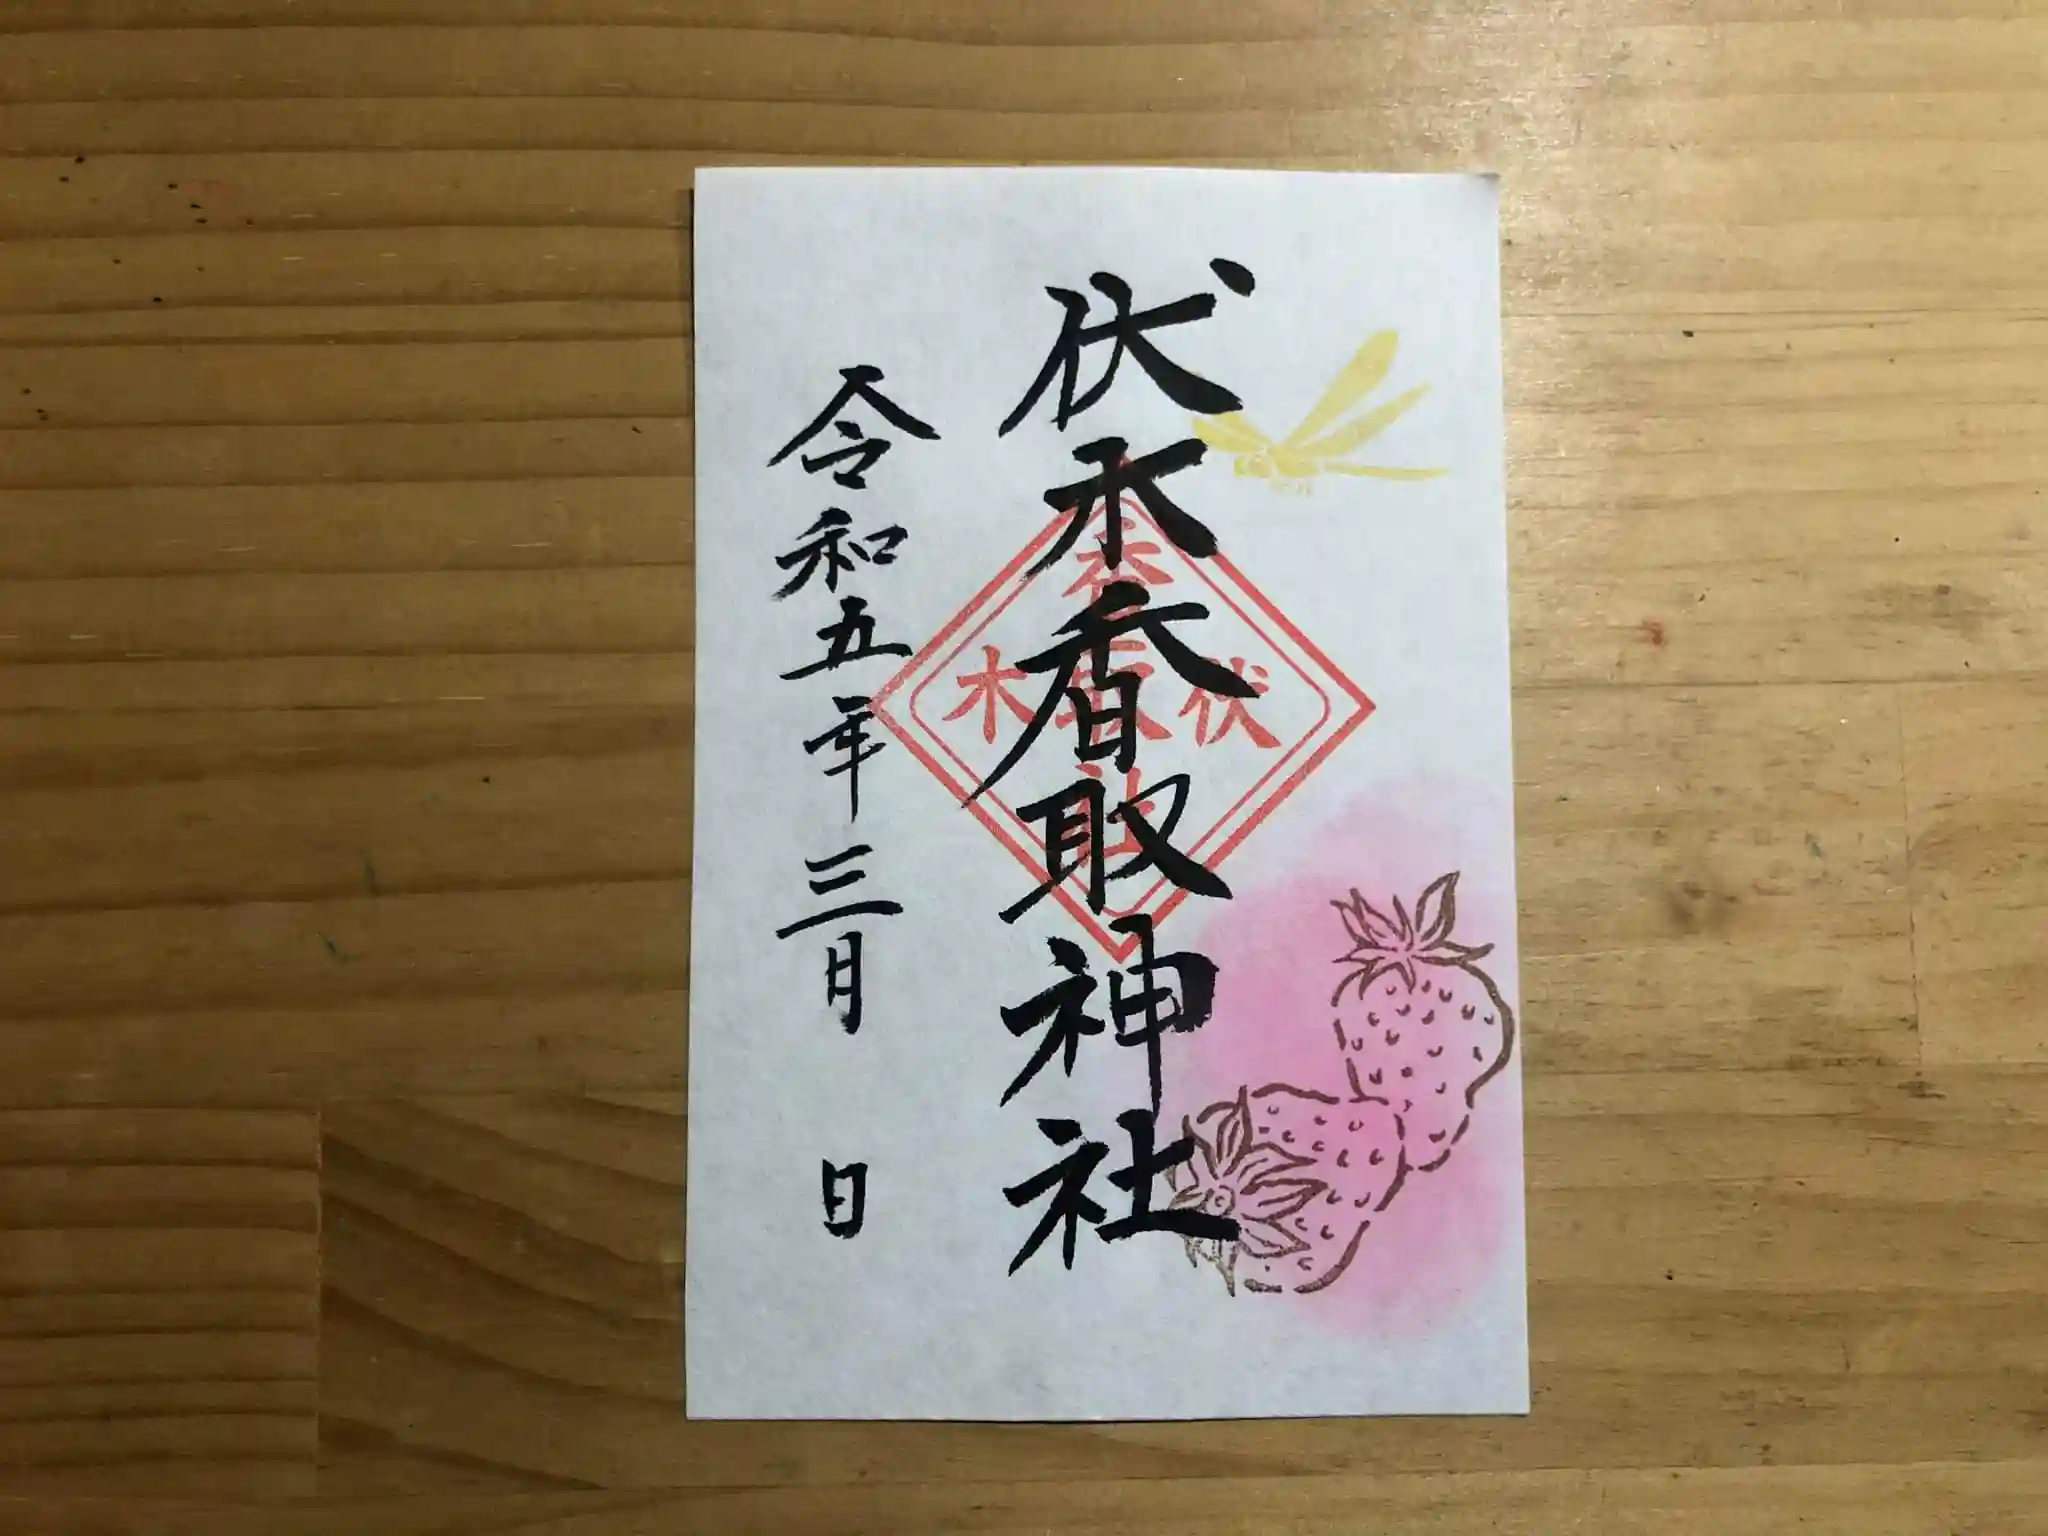 伏木香取神社
令和五年三月 日
伏
香取社
木